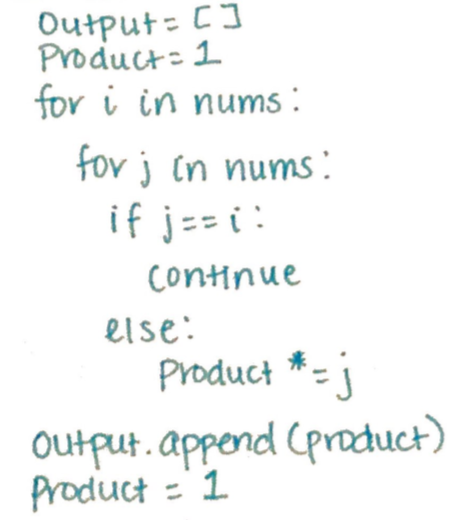 Output = []
Product = 1
for i in nums:
for j in nums:
if j == i:
continue
else:
Product *= j
output.append(product)
Product = 1